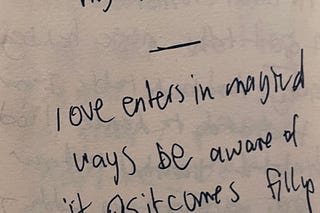 love enters in magical
ways be aware of
it as it comes fill up